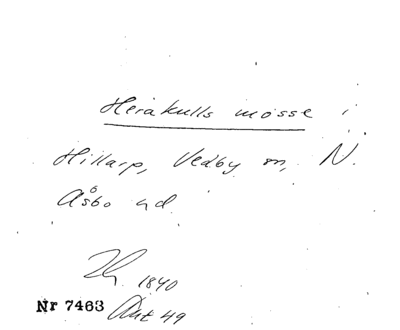 Herakulls mosse i
Hillarp, Vedby sn, N.
Åsbo hd.
1840
Nr 7463 Ant 49